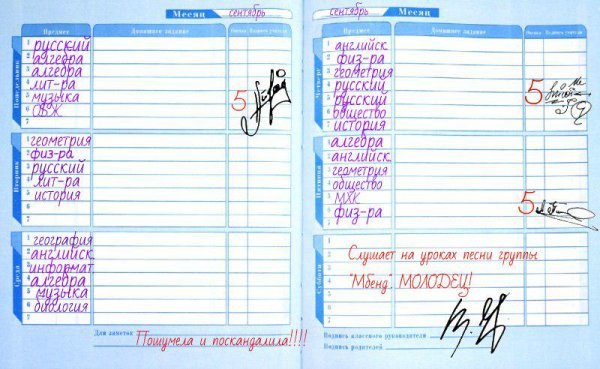 Месяц сентябрь
Предмет Домашнее задание Оценка Подпись учителя
Понедельник
1 русский
2 алгебра
3 алгебра
4 лит-ра
5 музыка 5
6 ОБЖ
7
Вторник
1 геометрия
2 физ-ра
3 русский
4 лит-ра
5 история
6
7
Среда
1 география
2 английск.
3 информат.
4 алгебра
5 музыка
6 биология
7
Для заметок Пошумела и поскандалила!!!!
сентябрь Месяц
Предмет Домашнее задание Оценка Подпись учителя
Четверг
1 английск
2 физ-ра
3 геометрия
4 русский
5 русский 5
6 общество
7 история
Пятница
1 алгебра
2 английск.
3 геометрия
4 общество
5 МХК
6 физ-ра 5
7
Суббота
1
2 Слушает на уроках песни группы
3
4 "Мбенд". МОЛОДЕЦ!
5
6
7
Подпись классного руководителя
Подпись родителей